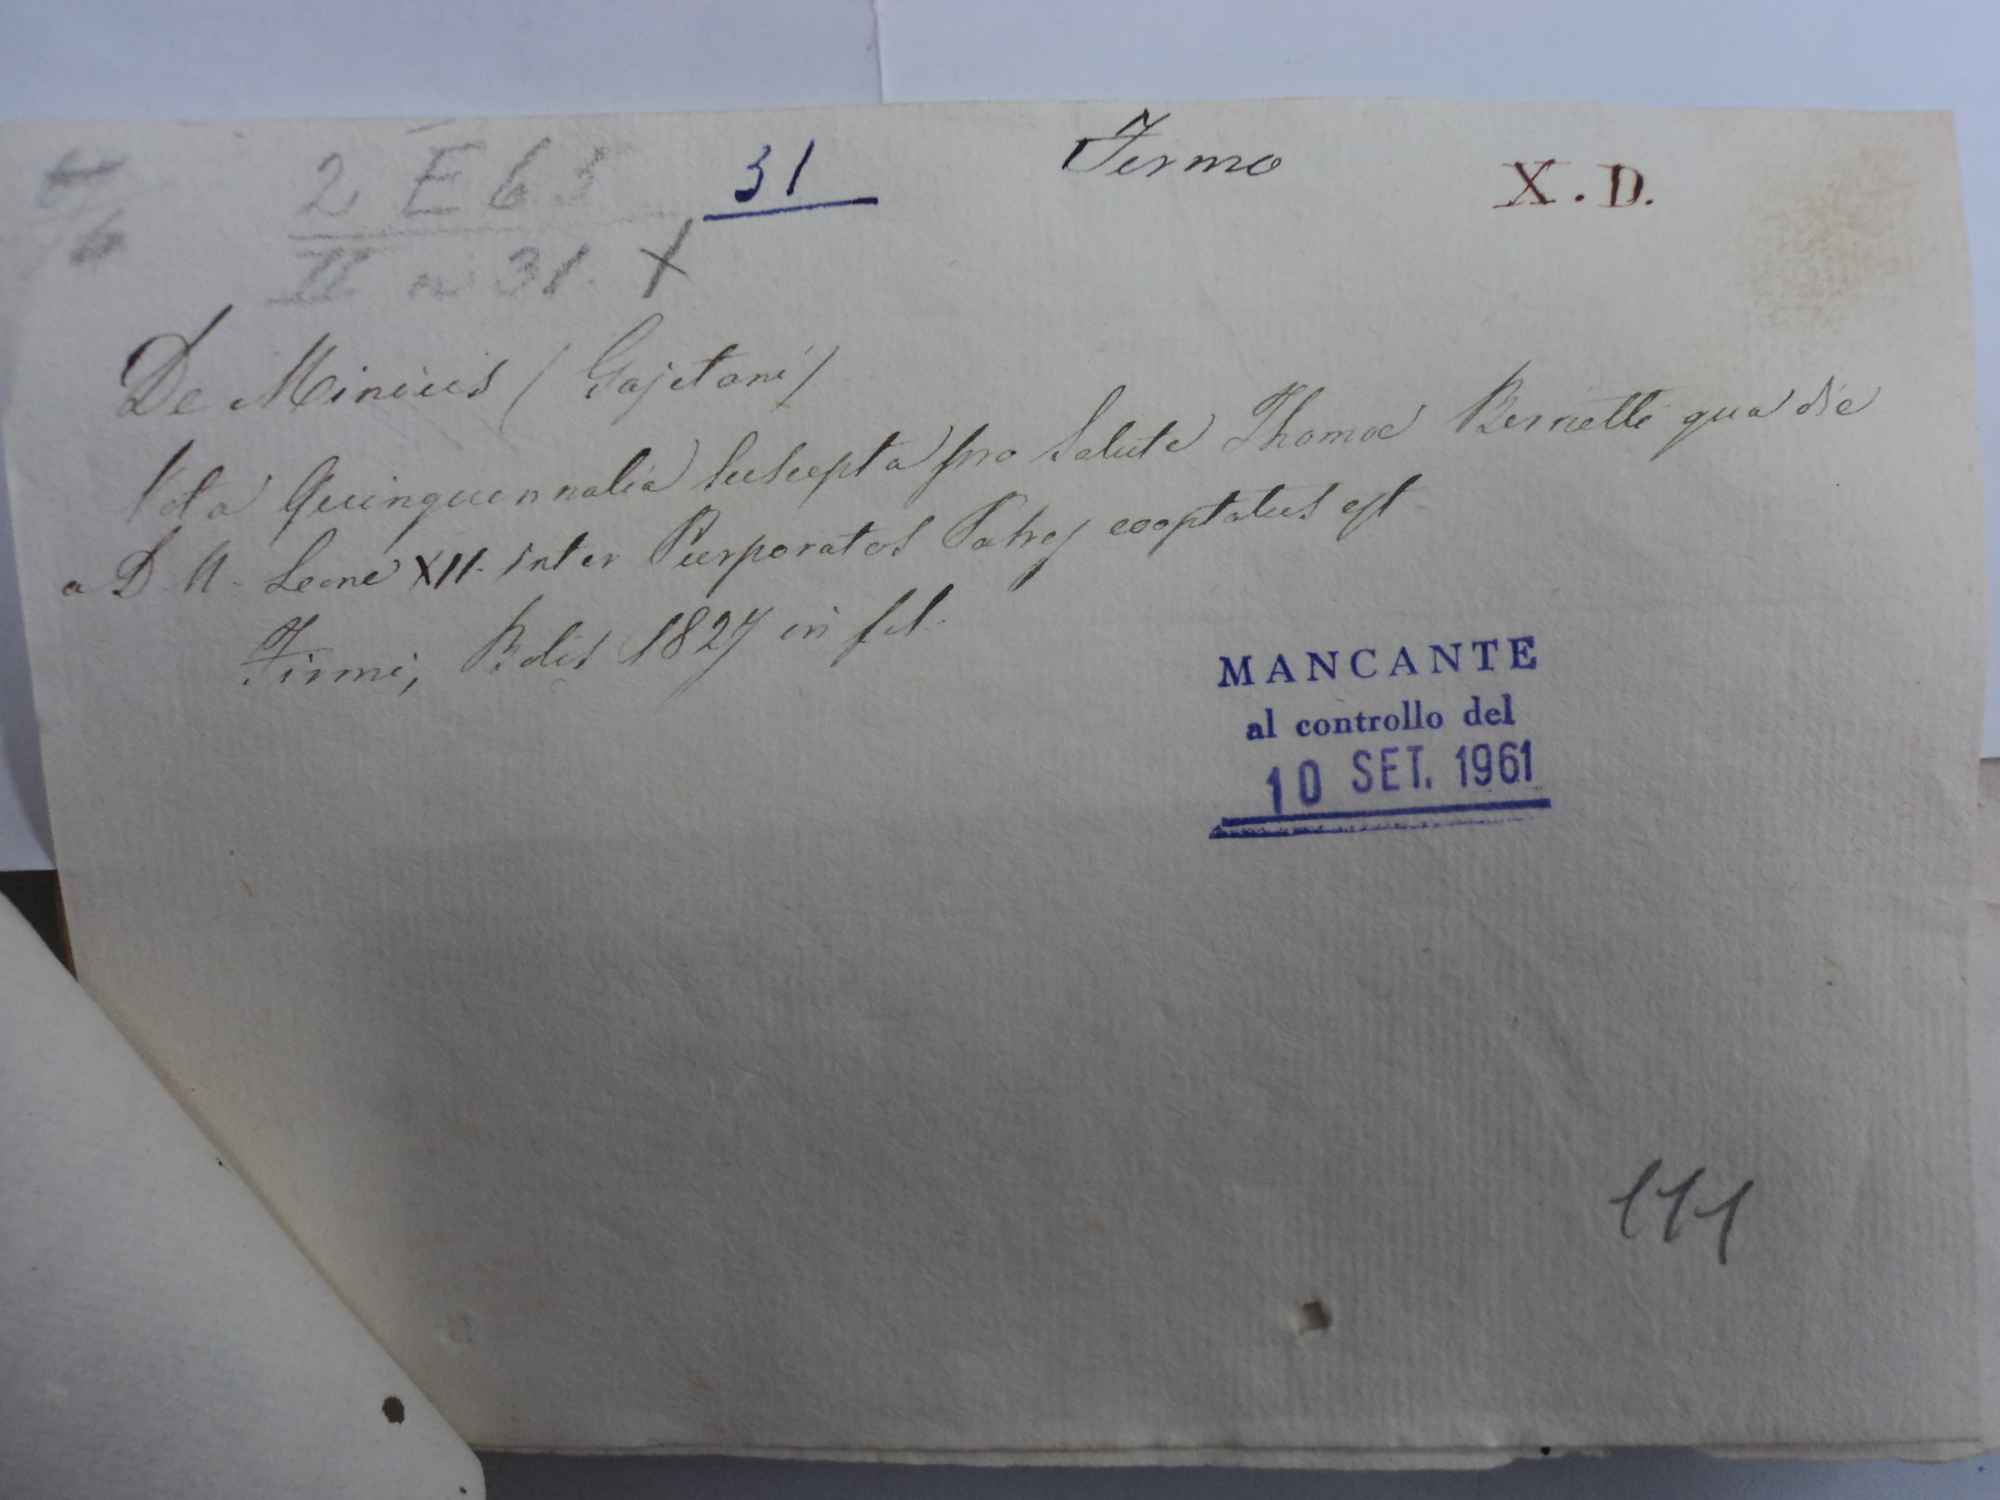 2 E 65 31 Fermo X.D.
6
II n 31. X
De Minicis (Gajetani)
Vota Quinquennalia suscepta pro Salute Thomae Bernetti qua die
a D. N. Leone XII. inter Purporatos Patres cooptatus est
Firmi, 1827 in fol.
MANCANTE
al controllo del
10 SET. 1961
111